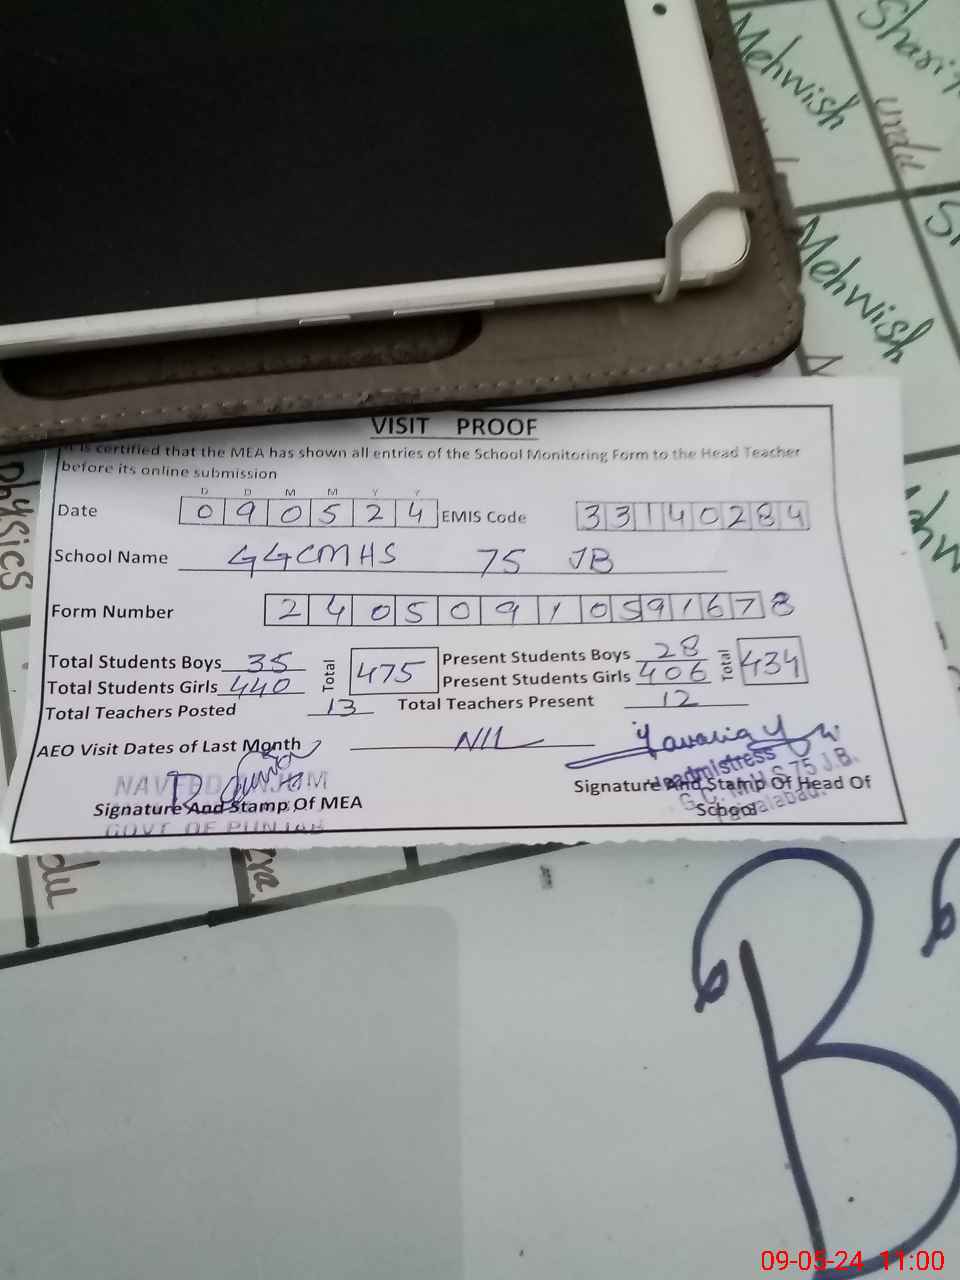 Mehwish
Shari
urdu
Mehwish
VISIT PROOF
It is certified that the MEA has shown all entries of the School Monitoring Form to the Head Teacher
before its online submission
D D M M Y Y
Date 0 9 0 5 2 4 EMIS Code 3 3 1 4 0 2 8 4
School Name GGCMHS 75 JB
Form Number 2 4 0 5 0 9 1 0 5 9 1 6 7 8
Total Students Boys 35 Total 475 Present Students Boys 28 Total 434
Total Students Girls 440 Present Students Girls 406
Total Teachers Posted 13 Total Teachers Present 12
AEO Visit Dates of Last Month NIL
Headmistress
G.C.M.H.S 75 J.B.
Faisalabad.
NAVEED ANJUM
Signature And Stamp Of MEA
GOVT OF PUNJAB
Signature And Stamp Of Head Of
School
physics
B
09-05-24 11:00